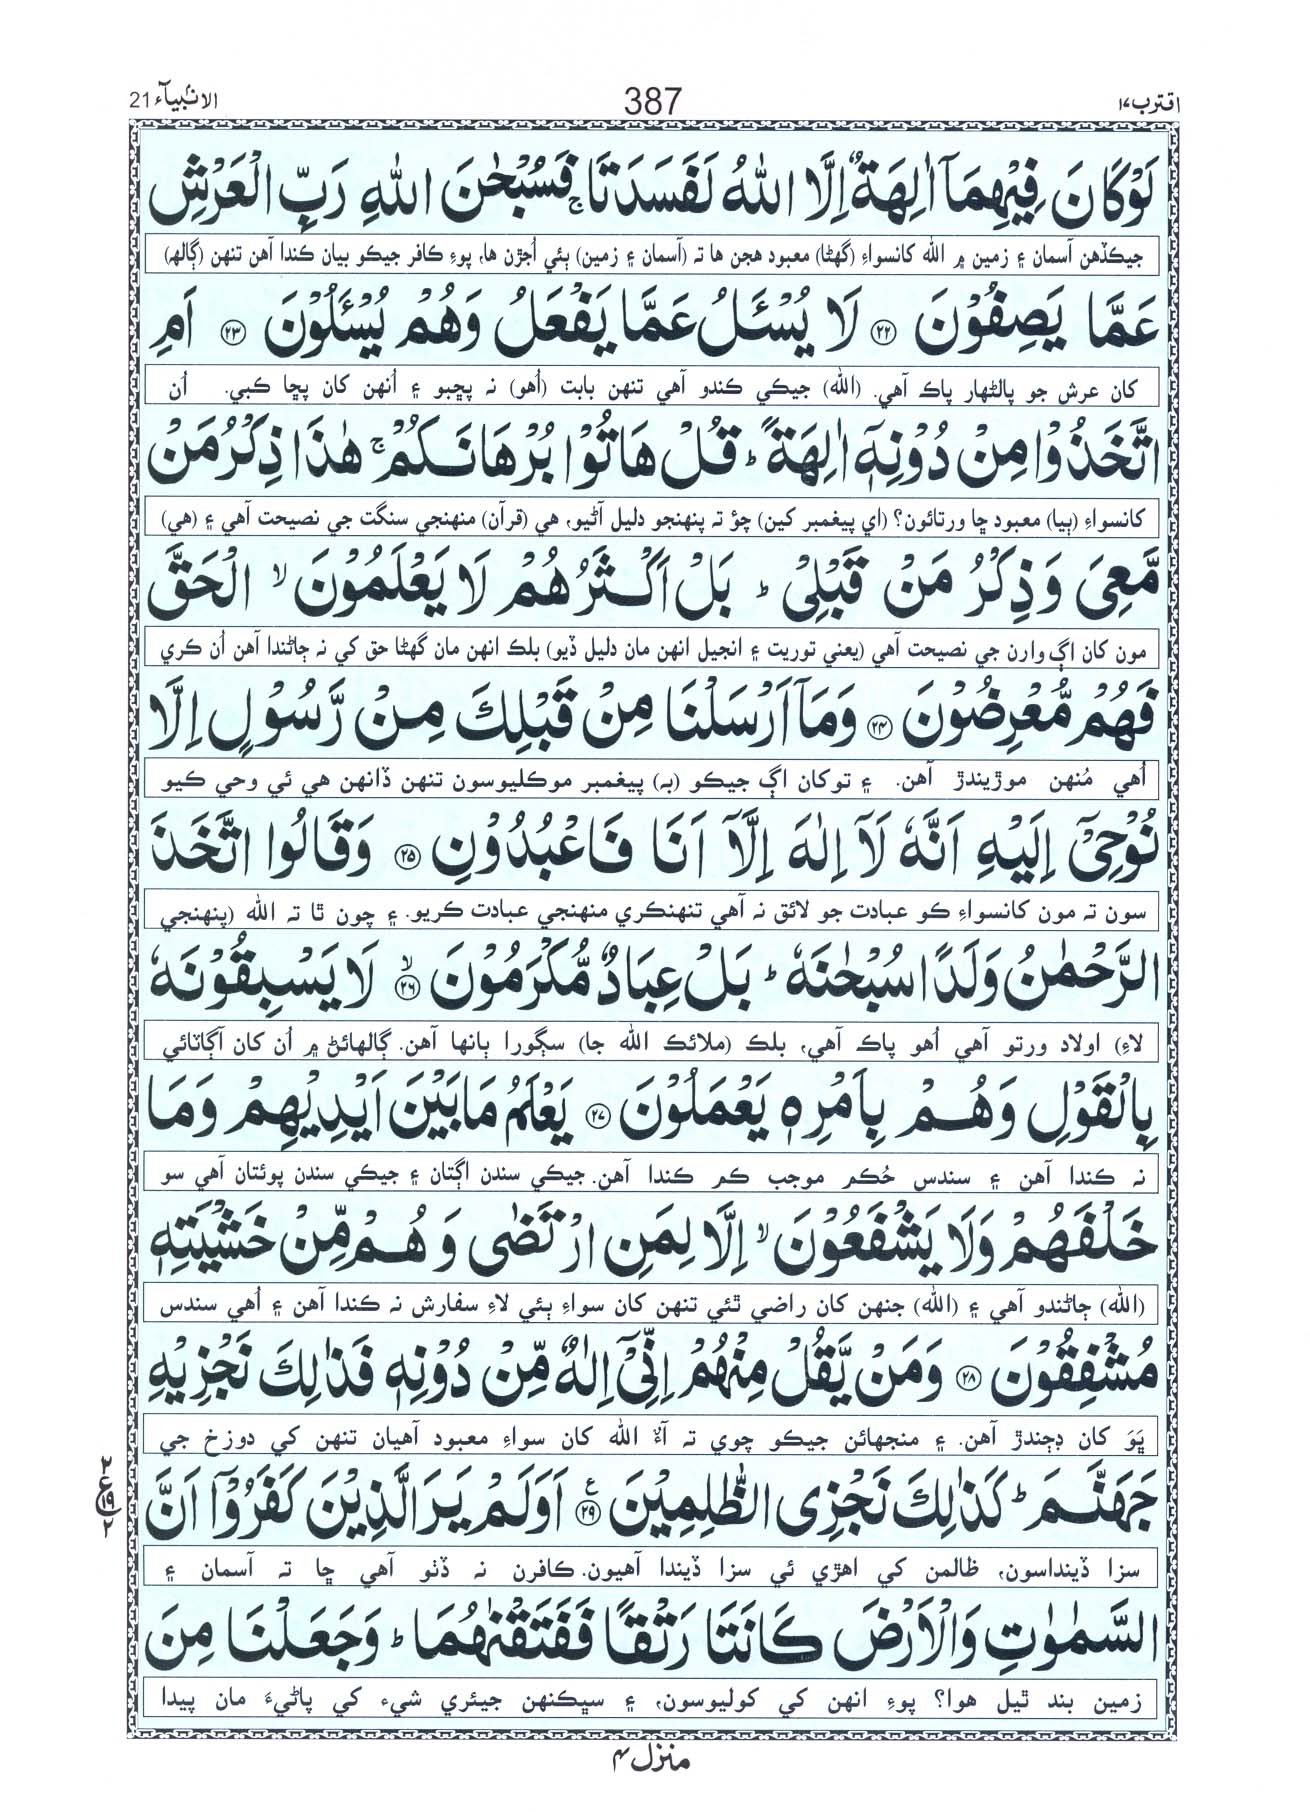 اقترب ١٧
387
الانبيآء 21
لَوْ كَانَ فِيْهِمَاۤ اٰلِهَةٌ اِلَّا اللّٰهُ لَفَسَدَتَا ۚ فَسُبْحٰنَ اللّٰهِ رَبِّ الْعَرْشِ
جيڪڏهن آسمان ۽ زمين ۾ الله کانسواءِ (گھڻا) معبود هجن ها ته (آسمان ۽ زمين) ٻئي اُجڙن ها، پوءِ ڪافر جيڪو بيان ڪندا آهن تنهن (ڳالھ)
عَمَّا يَصِفُوْنَ ﴿۲۲﴾ لَا يُسْـَٔلُ عَمَّا يَفْعَلُ وَهُمْ يُسْـَٔلُوْنَ ﴿۲۳﴾ اَمِ
کان عرش جو پالڻهار پاڪ آهي. (الله) جيڪي ڪندو آهي تنهن بابت (اُهو) نه پڇبو ۽ اُنهن کان پڇا ڪبي. اُن
اتَّخَذُوْا مِنْ دُوْنِهٖۤ اٰلِهَةً ؕ قُلْ هَاتُوْا بُرْهَانَكُمْ ۚ هٰذَا ذِكْرُ مَنْ
کانسواءِ (ٻيا) معبود ڇا ورتائون؟ (اي پيغمبر کين) چؤ ته پنهنجو دليل آڻيو، هي (قرآن) منهنجي سنگت جي نصيحت آهي ۽ (هي)
مَّعِيَ وَذِكْرُ مَنْ قَبْلِيْ ؕ بَلْ اَكْثَرُهُمْ لَا يَعْلَمُوْنَ ۙ الْحَقَّ
مون کان اڳ وارن جي نصيحت آهي (يعني توريت ۽ انجيل انهن مان دليل ڏيو) بلڪ انهن مان گھڻا حق کي نه ڄاڻندا آهن اُن ڪري
فَهُمْ مُّعْرِضُوْنَ ﴿۲۴﴾ وَمَاۤ اَرْسَلْنَا مِنْ قَبْلِكَ مِنْ رَّسُوْلٍ اِلَّا
اُهي مُنهن موڙيندڙ آهن. ۽ توکان اڳ جيڪو (به) پيغمبر موڪليوسون تنهن ڏانهن هي ئي وحي ڪيو
نُوْحِيْۤ اِلَيْهِ اَنَّهٗ لَاۤ اِلٰهَ اِلَّاۤ اَنَا فَاعْبُدُوْنِ ﴿۲۵﴾ وَقَالُوا اتَّخَذَ
سون ته مون کانسواءِ ڪو عبادت جو لائق نه آهي تنهنڪري منهنجي عبادت ڪريو. ۽ چون ٿا ته الله (پنهنجي
الرَّحْمٰنُ وَلَدًا سُبْحٰنَهٗ ؕ بَلْ عِبَادٌ مُّكْرَمُوْنَ ۙ﴿۲۶﴾ لَا يَسْبِقُوْنَهٗ
لاءِ) اولاد ورتو آهي اُهو پاڪ آهي، بلڪ (ملائڪ الله جا) سڳورا ٻانها آهن. ڳالهائڻ ۾ اُن کان اڳاٽائي
بِالْقَوْلِ وَهُمْ بِاَمْرِهٖ يَعْمَلُوْنَ ﴿۲۷﴾ يَعْلَمُ مَا بَيْنَ اَيْدِيْهِمْ وَمَا
نه ڪندا آهن ۽ سندس حُڪم موجب ڪم ڪندا آهن. جيڪي سندن اڳتان ۽ جيڪي سندن پوئتان آهي سو
خَلْفَهُمْ وَلَا يَشْفَعُوْنَ ۙ اِلَّا لِمَنِ ارْتَضٰى وَهُمْ مِّنْ خَشْيَتِهٖ
(الله) ڄاڻندو آهي ۽ (الله) جنهن کان راضي ٿئي تنهن کان سواءِ ٻئي لاءِ سفارش نه ڪندا آهن ۽ اُهي سندس
مُشْفِقُوْنَ ﴿۲۸﴾ وَمَنْ يَّقُلْ مِنْهُمْ اِنِّيْۤ اِلٰهٌ مِّنْ دُوْنِهٖ فَذٰلِكَ نَجْزِيْهِ
ڀَؤ کان ڊڄندڙ آهن. ۽ منجهائن جيڪو چوي ته آءٌ الله کان سواءِ معبود آهيان تنهن کي دوزخ جي
جَهَنَّمَ ؕ كَذٰلِكَ نَجْزِي الظّٰلِمِيْنَ ﴿۲۹﴾ع اَوَلَمْ يَرَ الَّذِيْنَ كَفَرُوْۤا اَنَّ
سزا ڏينداسون، ظالمن کي اهڙي ئي سزا ڏيندا آهيون. ڪافرن نه ڏٺو آهي ڇا ته آسمان ۽
السَّمٰوٰتِ وَالْاَرْضَ كَانَتَا رَتْقًا فَفَتَقْنٰهُمَا ؕ وَجَعَلْنَا مِنَ
زمين بند ٿيل هوا؟ پوءِ انهن کي کوليوسون، ۽ سڀڪنهن جيئري شيء کي پاڻيءَ مان پيدا
٢ ع ١٩ ٢
منزل ۴